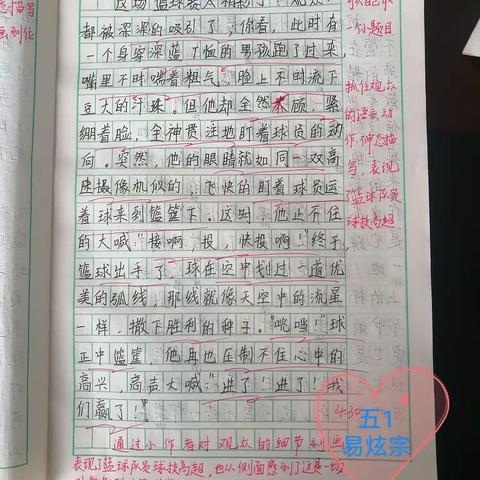 这场篮球赛太精彩了
都被深深的吸引了，你看，此时有
一个身穿深蓝T恤的男孩跑了过来，
嘴里不时喘着粗气，脸上不时流下
豆大的汗珠。但他却全然不顾，紧
绷着脸，全神贯注地盯着球员的动
向。突然，他的眼睛就如同一双高
速摄像机似的，飞快的盯着球员运
着球来到篮筐下。这时，他止不住
的大喊：“接啊，投，快投啊！”终于，
篮球出手了，球在空中划过一道优
美的弧线，那线就像天空中的流星
一样，撒下胜利的种子。“咣当”球
正中篮筐，他再也压制不住心中的
高兴，高声大喊：“进了！进了！我
们赢了！”。
通过小作者对观众的细节刻画
表现了篮球队员球技高超，也从侧面感到了这是一场
抓住观众
的语言、动
作、神态描
写，表现
了篮球队员
球技高超
4.30
五1
易炫宗